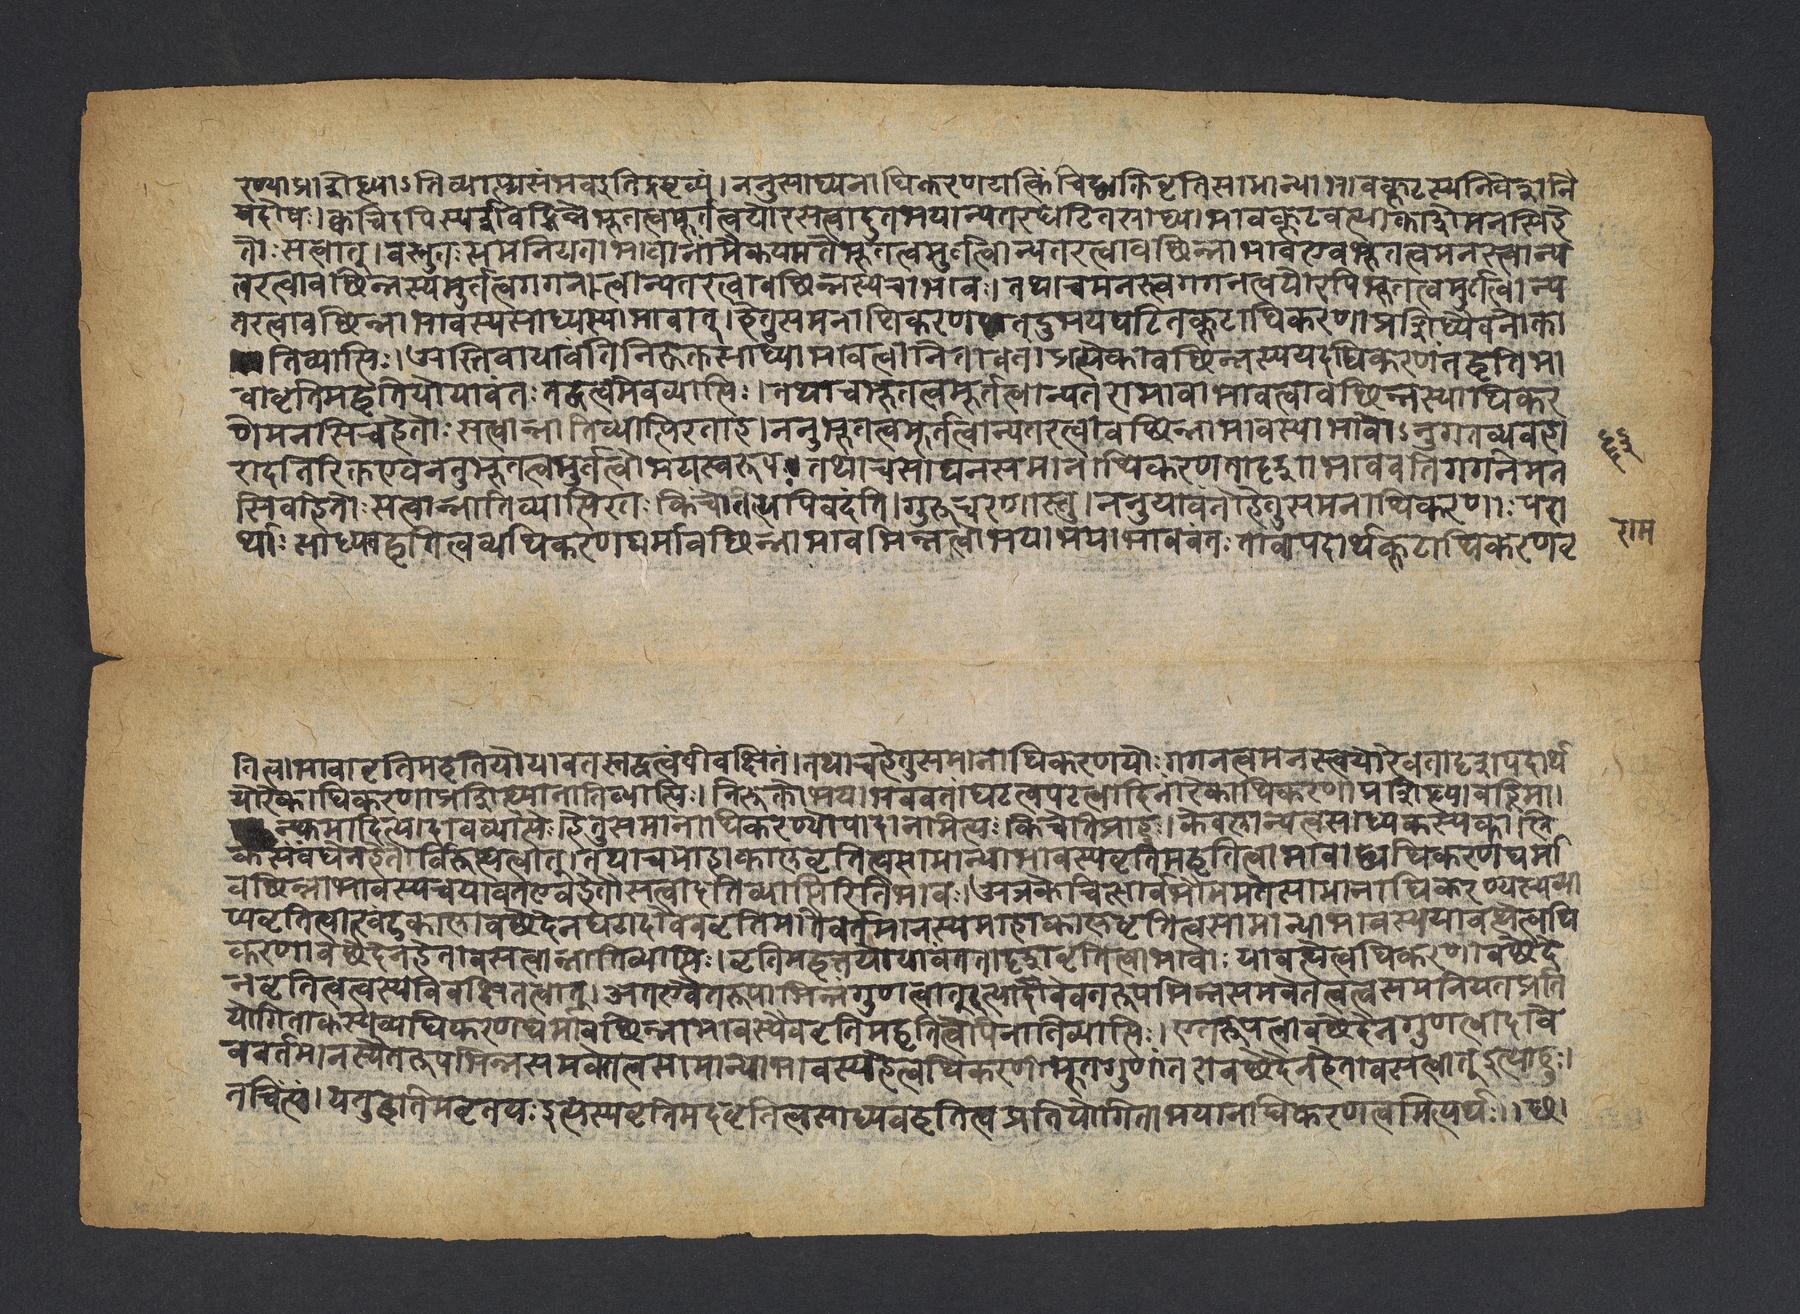 रण्याप्रसिद्ध्याऽतिव्याप्त्यसंभवइतिद्रष्टव्यं। ननुसाध्यनाधिकरणयत्किंचिद्व्यक्तिवृत्तिसामान्याभावकूटस्यनिवेशान्नि
यदोषः। क्वचिदपि भूतत्वमूर्तत्वयोरसत्वादुतभयान्यतरघटितसाध्याभावकूटवत्योक्तादौमनसिहे
तोः सत्वात्। वस्तुतः समनियताभावानामैक्यमतेभूतत्वमूर्तत्वान्यतरत्वावच्छिन्नाभावएवभूतत्वमनस्त्वान्य
तरत्वावच्छिन्नस्यमूर्तत्वगगनत्वान्यतरत्वावच्छिन्नस्यचाभावः। तथाचमनस्त्वगगनत्वयोरपिभूतत्वमूर्तत्वान्य
तरत्वावच्छिन्नाभावस्यसाध्यस्याभावात्। हेतुसमानाधिकरणतदुभयघटितकूटाधिकरणाप्रसिद्ध्यैवनोक्ता
तिव्याप्तिः। अस्तिवायावंतिनिरुक्तसाध्याभावत्वानितावता प्रत्येकावच्छिन्नस्ययदधिकरणंतद्वृत्तिभा
वावृत्तिमद्वृत्तियोयावंतः तद्वत्वमेवव्याप्तिः। तथाचभूतत्वमूर्तत्वान्यतराभावाभावत्वावच्छिन्नस्याधिकर
णेमनसिचहेतोः सत्वान्नातिव्याप्तिरताह। ननुभूतत्वमूर्तत्वान्यतरत्वावच्छिन्नाभावस्याभावोऽनुगतव्यवहा
रादतिरिक्तएवनतुभूतत्वमूर्तत्वोभयस्वरूपः तथाचसाधनसमानाधिकरणतादृशाभाववतिगगनेमन
सिवाहेतोः सत्वान्नातिव्याप्तिरतः किंचेतित्यपिवदंति। गुरुचरणास्तु। ननुयावंतोहेतुसमनाधिकरणाः पदा
र्थाः साध्यवद्वृत्तित्वव्यधिकरणधर्मावच्छिन्नाभावभिन्नत्वोभयाभयाभाववंतः तावत्पदार्थकूटाधिकरणवृ
६३
राम
त्तित्वाभावावृत्तिमद्वृत्तियोयावतस्तद्वत्वंविवक्षितं। तथाचहेतुसमानाधिकरणयोः गगनत्वमनस्त्वयोरेवतादृशपदार्थ
योरेकाधिकरणाप्रसिद्ध्यानातिव्याप्तिः। निरुक्तोभयाभववतांघटत्वपटत्वादीनामेकाधिकरणाप्रसिद्ध्यावह्निमा
न्धूमादित्यादावव्याप्तिः हेतुसमानाधिकरण्योपादानमित्यतः किंचेतिप्राहुः। केवलान्वयित्वसाध्यकस्यकालि
कसंबंधेनहेतोर्विरुद्धत्वात्। तथाचमहाकालवृत्तित्वसामान्याभावस्यवृत्तिमद्वृत्तित्वाभावाद्व्यधिकरणधर्मा
वच्छिन्नाभावस्यचयावतएवहेतोसत्वादतिव्याप्तिरितिभावः। अत्रकेचित्सार्वभौममतेसामानाधिकरण्यस्यव्या
प्यवृत्तित्वात्खंडकालावच्छेदेनघटादावेववृत्तिमतिवर्तमानस्यमहाकालवृत्तित्वसामान्याभावस्ययावत्हेत्वधि
करणावच्छेदेनहेतावसत्वान्नातिव्याप्तिः। वृत्तिमद्वृत्तयोयावंततादृशवृत्तित्वाभावाः यावत्हेत्वधिकरणावच्छेदे
नवृत्तित्वत्वस्यविवक्षितत्वात्। अतएवैतद्रूपाभिन्नगुणत्वात्इत्यादौवेवतद्रूपभिन्नसमवेतत्वत्वसमनियतप्रति
योगिताकस्यव्यधिकरणधर्मावच्छिन्नाभावस्यैववृत्तिमद्वृत्तित्वेपिनातिव्याप्तिः। एतद्रूपत्वावच्छेदेनगुणत्वादावे
ववर्तमानस्यैतद्रूपभिन्नसमवेतत्वसामान्याभावस्यहेत्वधिकरणीभूतगुणांतरावच्छेदेनहेतावसत्वात्इत्याहुः।
तच्चिंत्यं। यत्तुवृत्तिमद्वृत्तयः इत्यस्यवृत्तिमदवृत्तित्वसाध्यवद्वृत्तित्वप्रतियोगिताभयानाधिकरणत्वमित्यर्थः॥ छ।